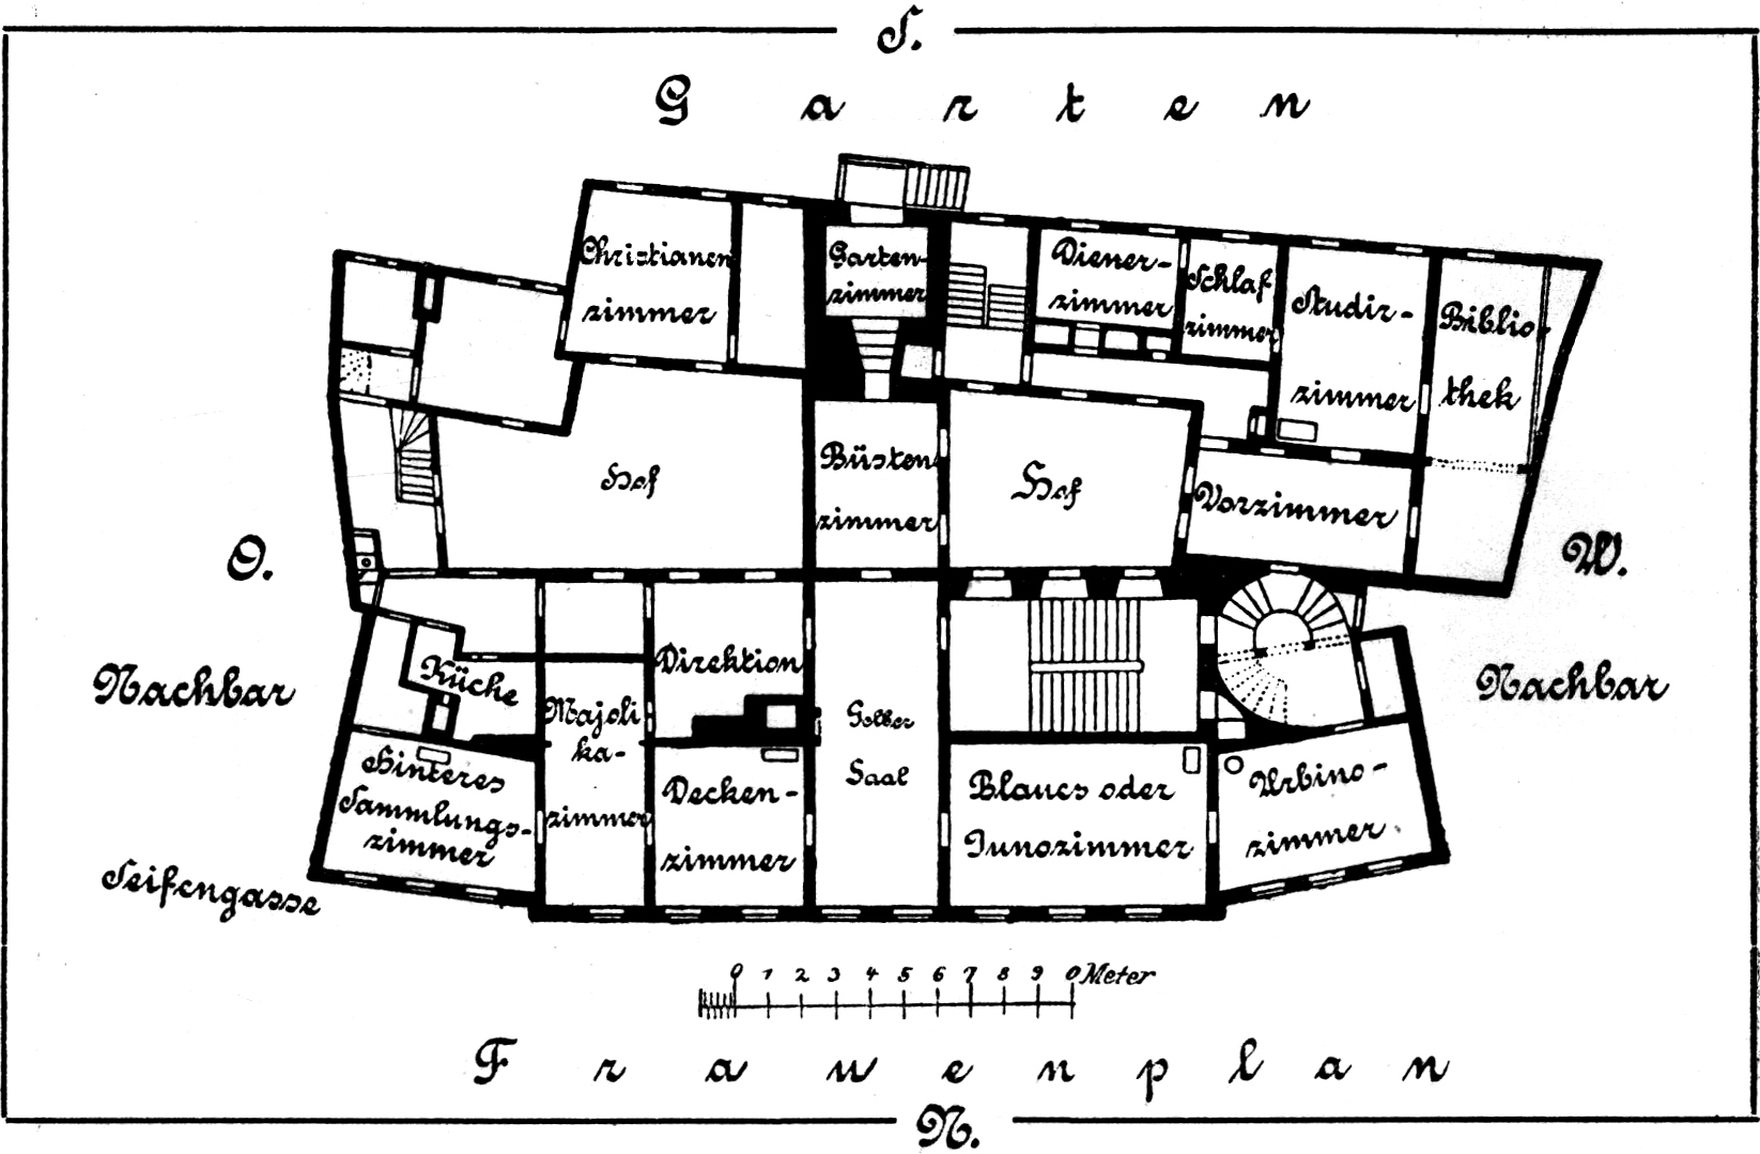 S.
Garten
Christianen
zimmer
Garten-
zimmer
Diener-
zimmer
Schlaf
zimmer
Studir-
zimmer
Biblio-
thek
Hof
Büsten
zimmer
Hof
Vorzimmer
O.
W.
Nachbar
Küche
Direktion
Majoli
ka-
zimmer
Gelber
Saal
Nachbar
Hinteres
Sammlungs-
zimmer
Decken-
zimmer
Blaues oder
Junozimmer
Urbino-
zimmer
Seifengasse
0 1 2 3 4 5 6 7 8 9 0 Meter
Frauenplan
N.